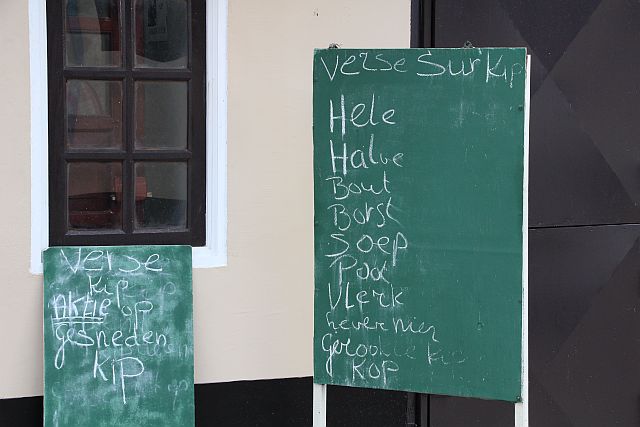 verse
kip
Aktie op
gesneden
kip
verse Surkip
Hele
Halve
Bout
Borst
Soep
Poot
Vlerk
Levernier
Gerookte kip
Kop